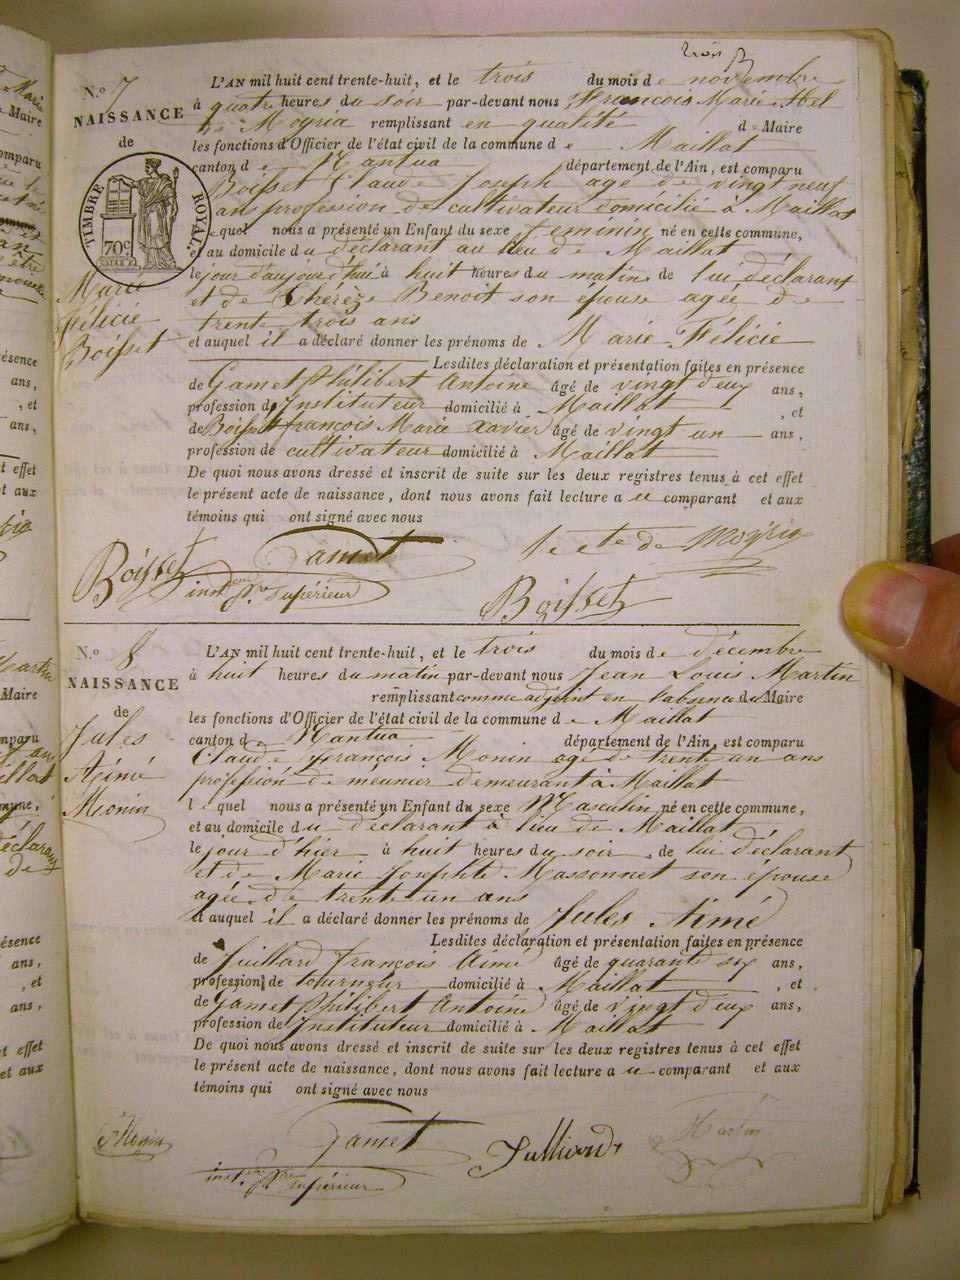 trois
N.o 7
NAISSANCE
de
TIMBRE ROYAL.
70c
Marie
Félicié
Boisset
L'AN mil huit cent trente-huit, et le trois du mois de novembre
à quatre heures du soir par-devant nous François Marie Abel
de Moyria remplissant en qualité de Maire
les fonctions d'Officier de l'état civil de la commune de Maillat
canton de Nantua département de l'Ain, est comparu
Boisset Claude Joseph agé de vingt neuf
ans profession de cultivateur domicilié à Maillat
lequel nous a présenté un Enfant du sexe féminin né en cette commune,
et au domicile du déclarant au lieu de Maillat
le jour d'aujourd'hui à huit heures du matin de lui déclarant
et de Thérèze Benoit son épouse agée de
trente trois ans
et auquel il a déclaré donner les prénoms de Marie Félicié
Lesdites déclaration et présentation faites en présence
de Gamet Philibert Antoine âgé de vingt deux ans,
profession d'Instituteur domicilié à Maillat , et
de Boisset françois Marie xavier âgé de vingt un ans,
profession de cultivateur domicilié à Maillat
De quoi nous avons dressé et inscrit de suite sur les deux registres tenus à cet effet
le présent acte de naissance, dont nous avons fait lecture au comparant et aux
témoins qui ont signé avec nous
Boisset Gamet de Moyria
inst. supérieur
Boisset
N.o 8
NAISSANCE
de
Jules
Aimé
Monin
L'AN mil huit cent trente-huit, et le trois du mois de décembre
à huit heures du matin par-devant nous Jean Louis Martin
remplissant comme adjoint en l'absence du Maire
les fonctions d'Officier de l'état civil de la commune de Maillat
canton de Nantua département de l'Ain, est comparu
Claude françois Monin agé de trente un ans
profession de meunier demeurant à Maillat
lequel nous a présenté un Enfant du sexe Masculin né en cette commune,
et au domicile du déclarant à lieu de Maillat
le jour d'hier à huit heures du soir de lui déclarant
et de Marie Josephte Massonnet son épouse
agée de trente un ans
et auquel il a déclaré donner les prénoms de Jules Aimé
Lesdites déclaration et présentation faites en présence
de Juillard françois Aimé âgé de quarante six ans,
profession de tourneur domicilié à Maillat , et
de Gamet Philibert Antoine âgé de vingt deux ans,
profession d'Instituteur domicilié à Maillat
De quoi nous avons dressé et inscrit de suite sur les deux registres tenus à cet effet
le présent acte de naissance, dont nous avons fait lecture au comparant et aux
témoins qui ont signé avec nous
Monin Gamet Julliard Martin
inst. supérieur